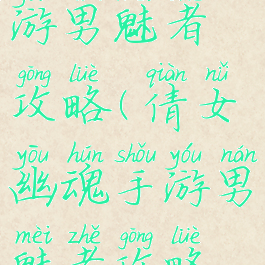 游男魅者
gōng lüè qiàn nǚ
攻略(倩女
yōu hún shǒu yóu nán
幽魂手游男
mèi zhě gōng lüè
魅者攻略